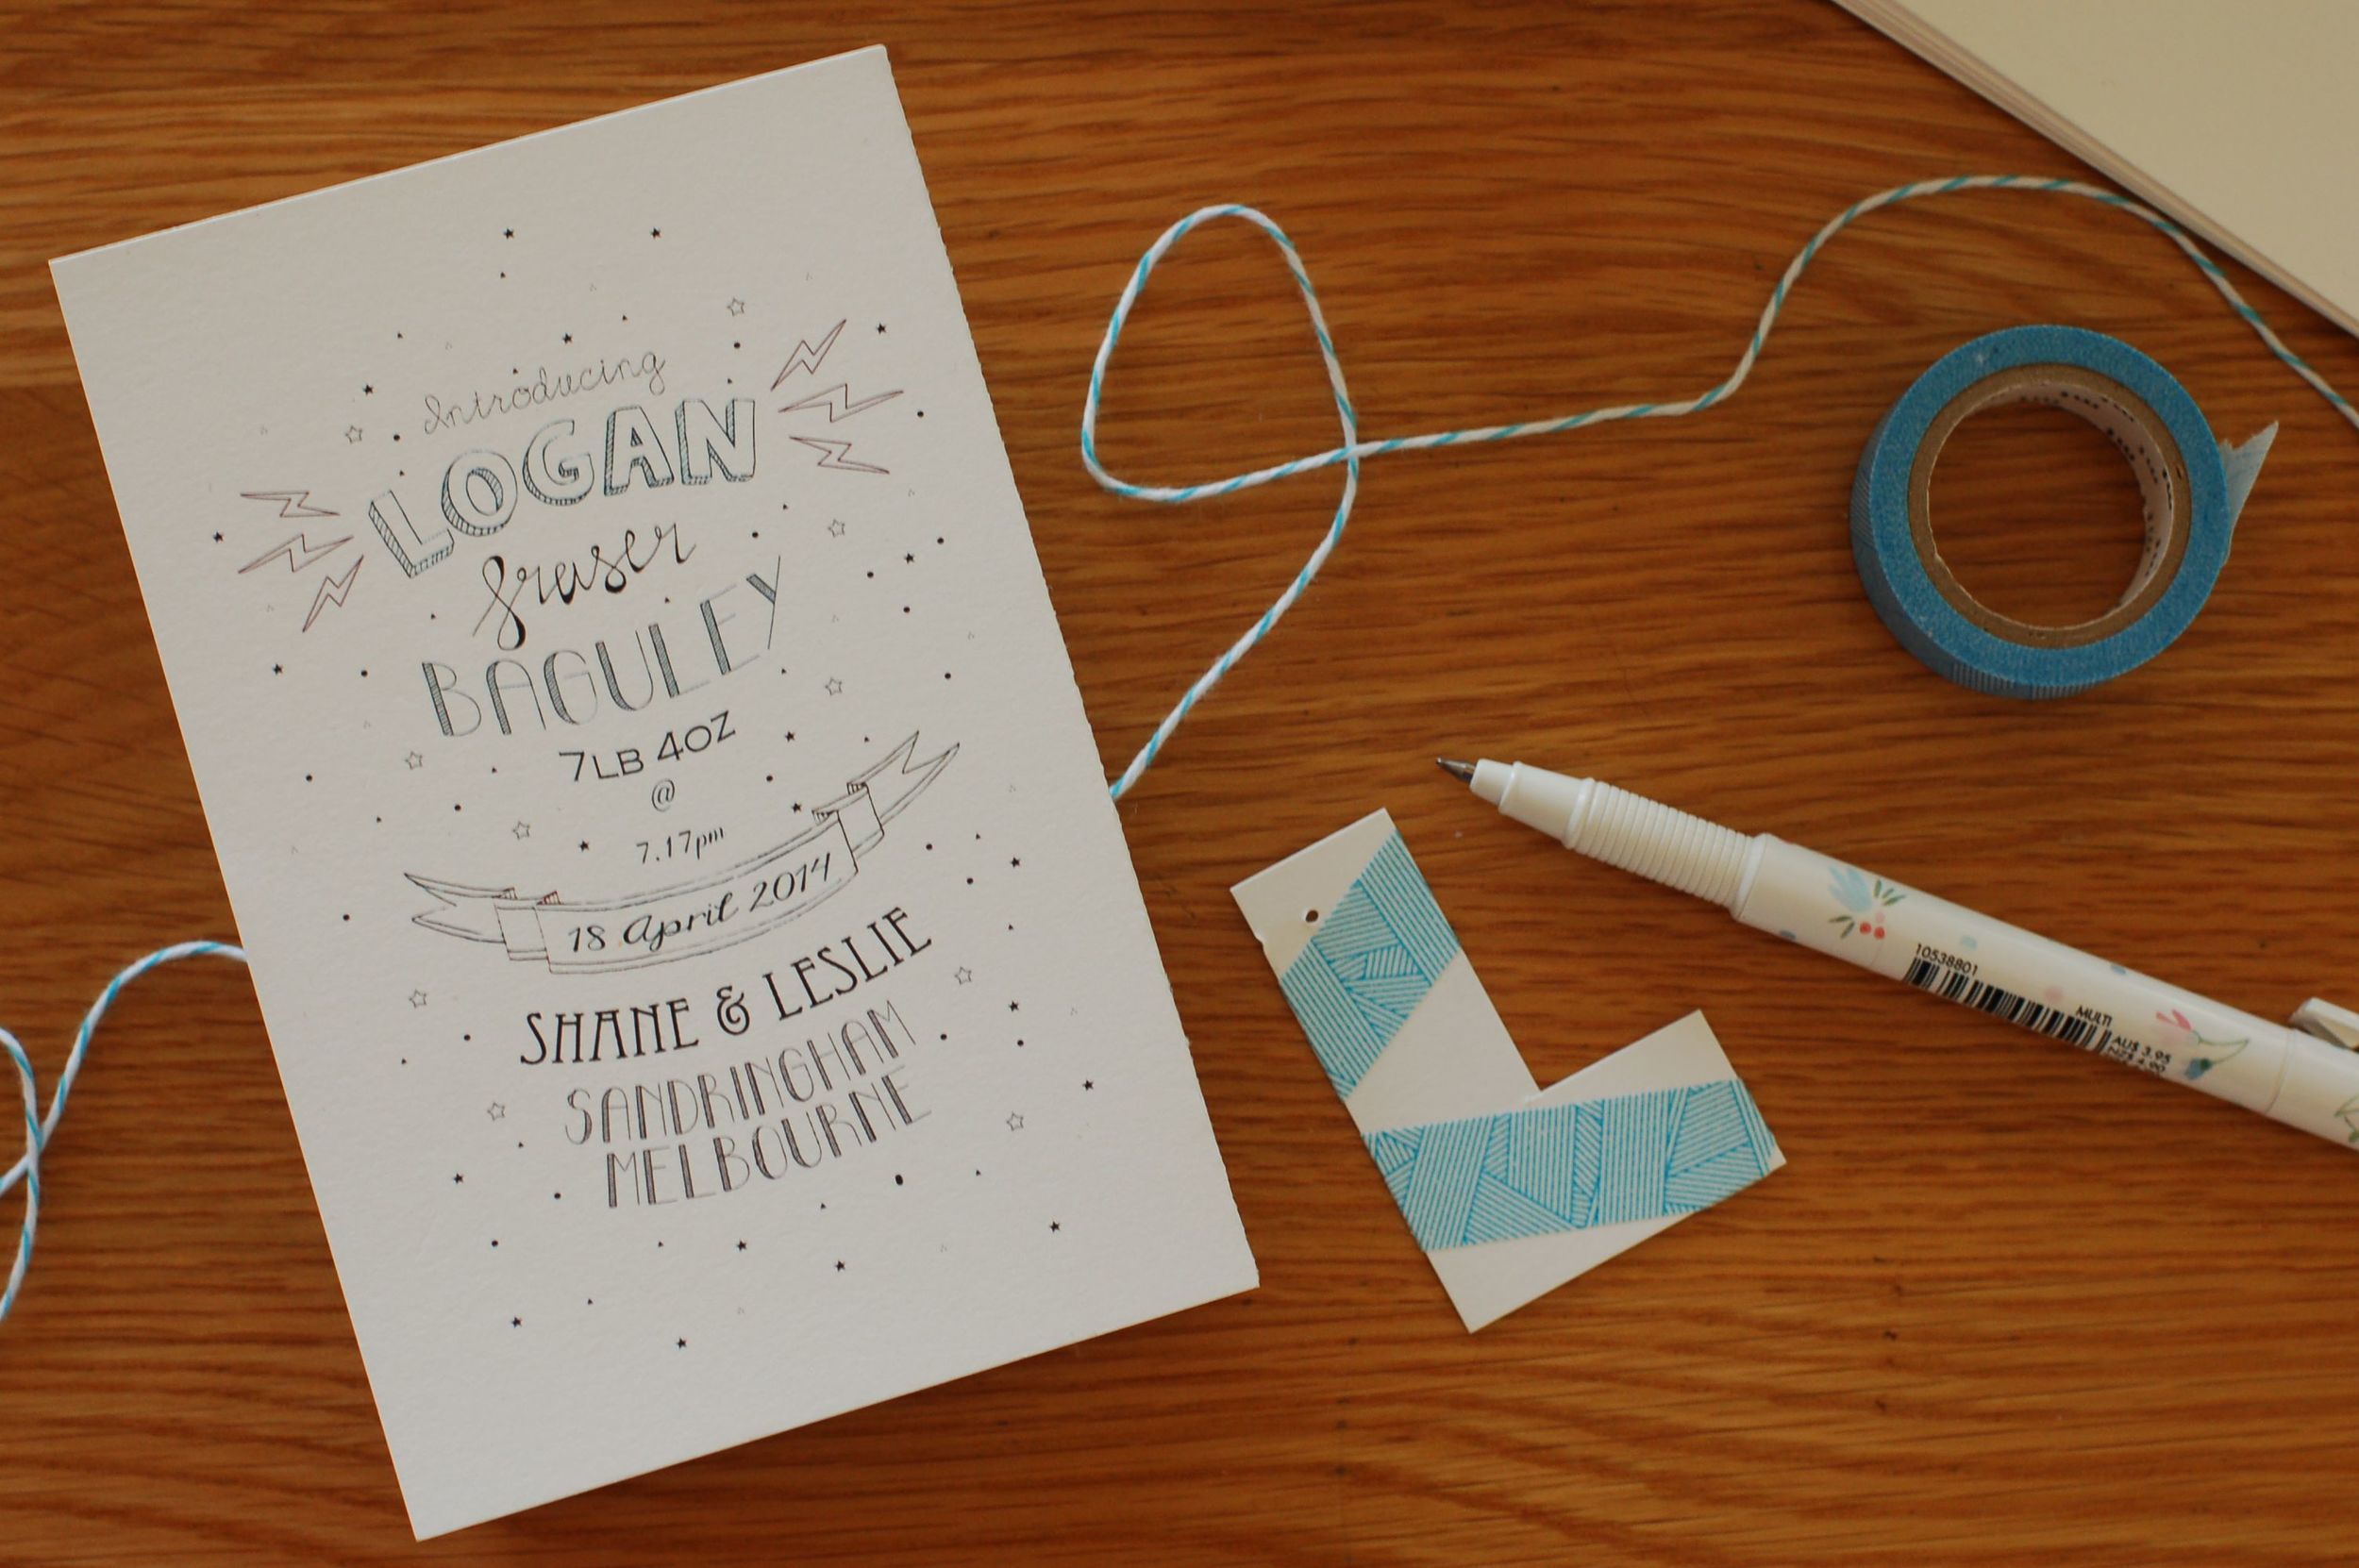 Introducing
LOGAN
fraser
BAGULEY
7LB 4OZ
@
7.17pm
18 April 2014
SHANE & LESLIE
SANDRINGHAM
MELBOURNE
10538801
MULTI
AU$ 3.95
NZ$ 4.90